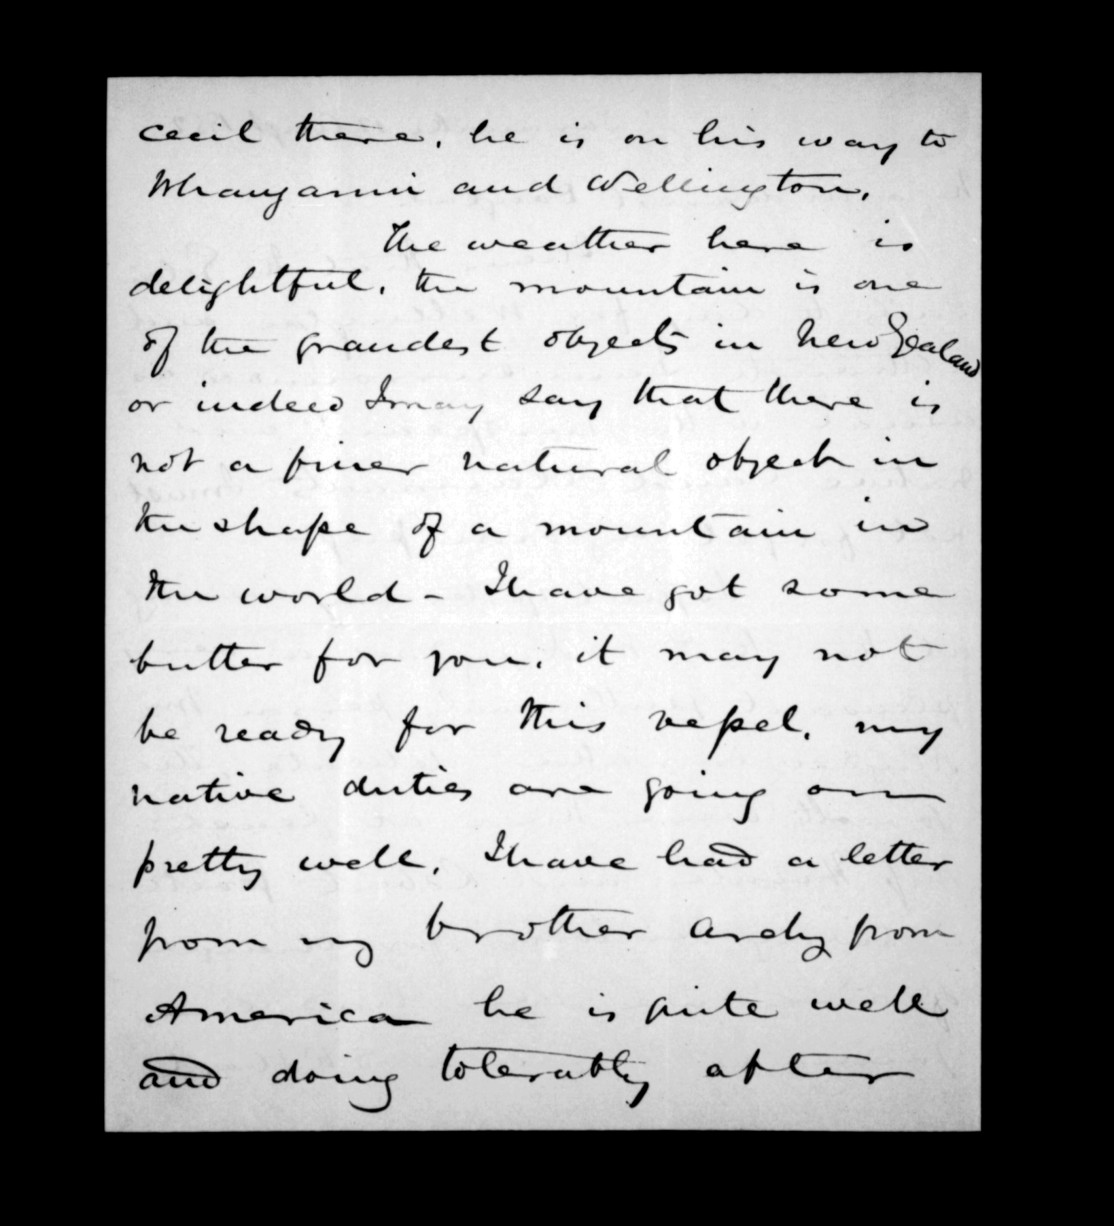 Cecil there, he is on his way to
Whanganui and Wellington,
The weather here is
delightful, the mountain is one
of the grandest objects in New Zealand
or indeed I may say that there is
not a finer natural object in
the shape of a mountain in
the world - I have got some
butter for you, it may not
be ready for this vessel, my
native duties are going on
pretty well, I have had a letter
from my brother Archy from
America he is quite well
and doing tolerably after